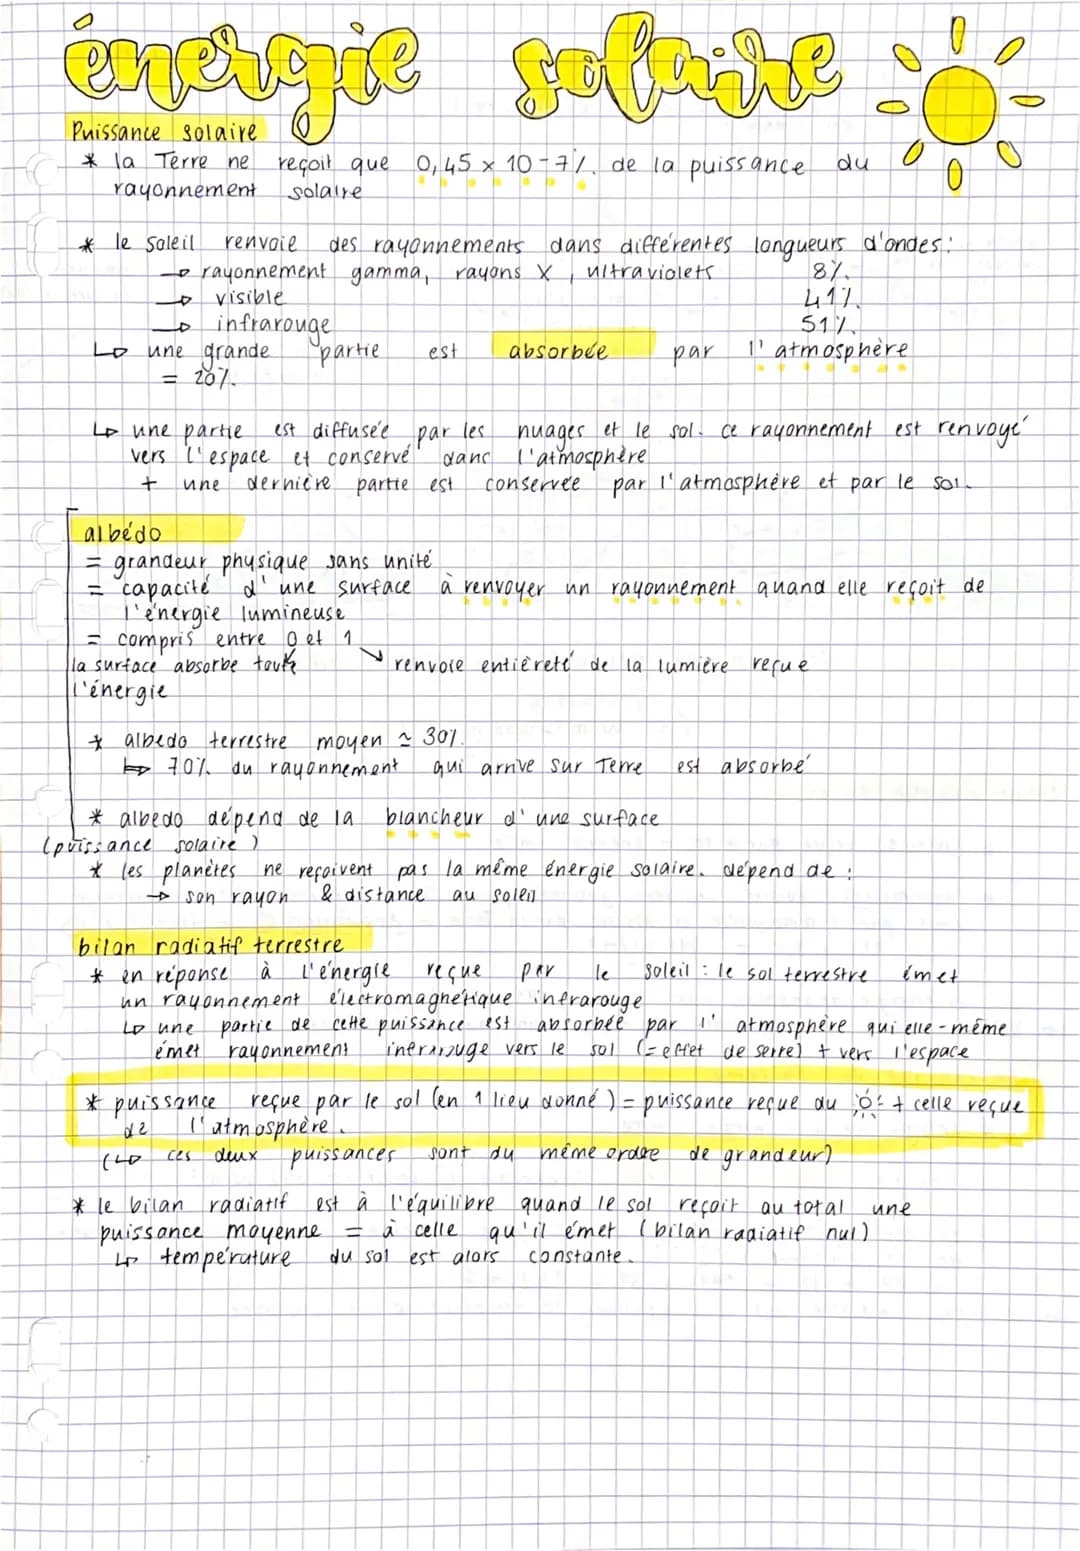 énergie solaire
Puissance solaire
* la Terre ne reçoit que 0,45 x 10-7%. de la puissance du
rayonnement solaire
* le soleil renvoie des rayonnements dans différentes longueurs d'ondes:
→ rayonnement gamma, rayons X, ultraviolets 8%.
→ visible 41%.
→ infrarouge 51%.
↳ une grande partie est absorbée par l'atmosphère
= 20%.
↳ une partie est diffusée par les nuages et le sol. ce rayonnement est renvoyé
vers l'espace et conservé danc l'atmosphère
+ une dernière partie est conservée par l'atmosphère et par le sol.
albédo
= grandeur physique sans unité
= capacité d'une surface à renvoyer un rayonnement quand elle reçoit de
l'énergie lumineuse
= compris entre 0 et 1
la surface absorbe toute ↘ renvoie entièreté de la lumière reçue
l'énergie
* albedo terrestre moyen ≃ 30%.
↳ 70%. du rayonnement qui arrive sur Terre est absorbé
* albedo dépend de la blancheur d'une surface
(puissance solaire)
* les planètes ne reçoivent pas la même énergie solaire. dépend de :
→ son rayon & distance au soleil
bilan radiatif terrestre
* en réponse à l'énergie reçue par le soleil : le sol terrestre émet
un rayonnement électromagnétique infrarouge
↳ une partie de cette puissance est absorbée par l'atmosphère qui elle-même
émet rayonnement infrarouge vers le sol (= effet de serre) + vers l'espace
* puissance reçue par le sol (en 1 lieu donné) = puissance reçue du ☼ + celle reçue
de l'atmosphère.
(↳ ces deux puissances sont du même ordre de grandeur)
* le bilan radiatif est à l'équilibre quand le sol reçoit au total une
puissance moyenne = à celle qu'il émet (bilan radiatif nul)
↳ température du sol est alors constante.